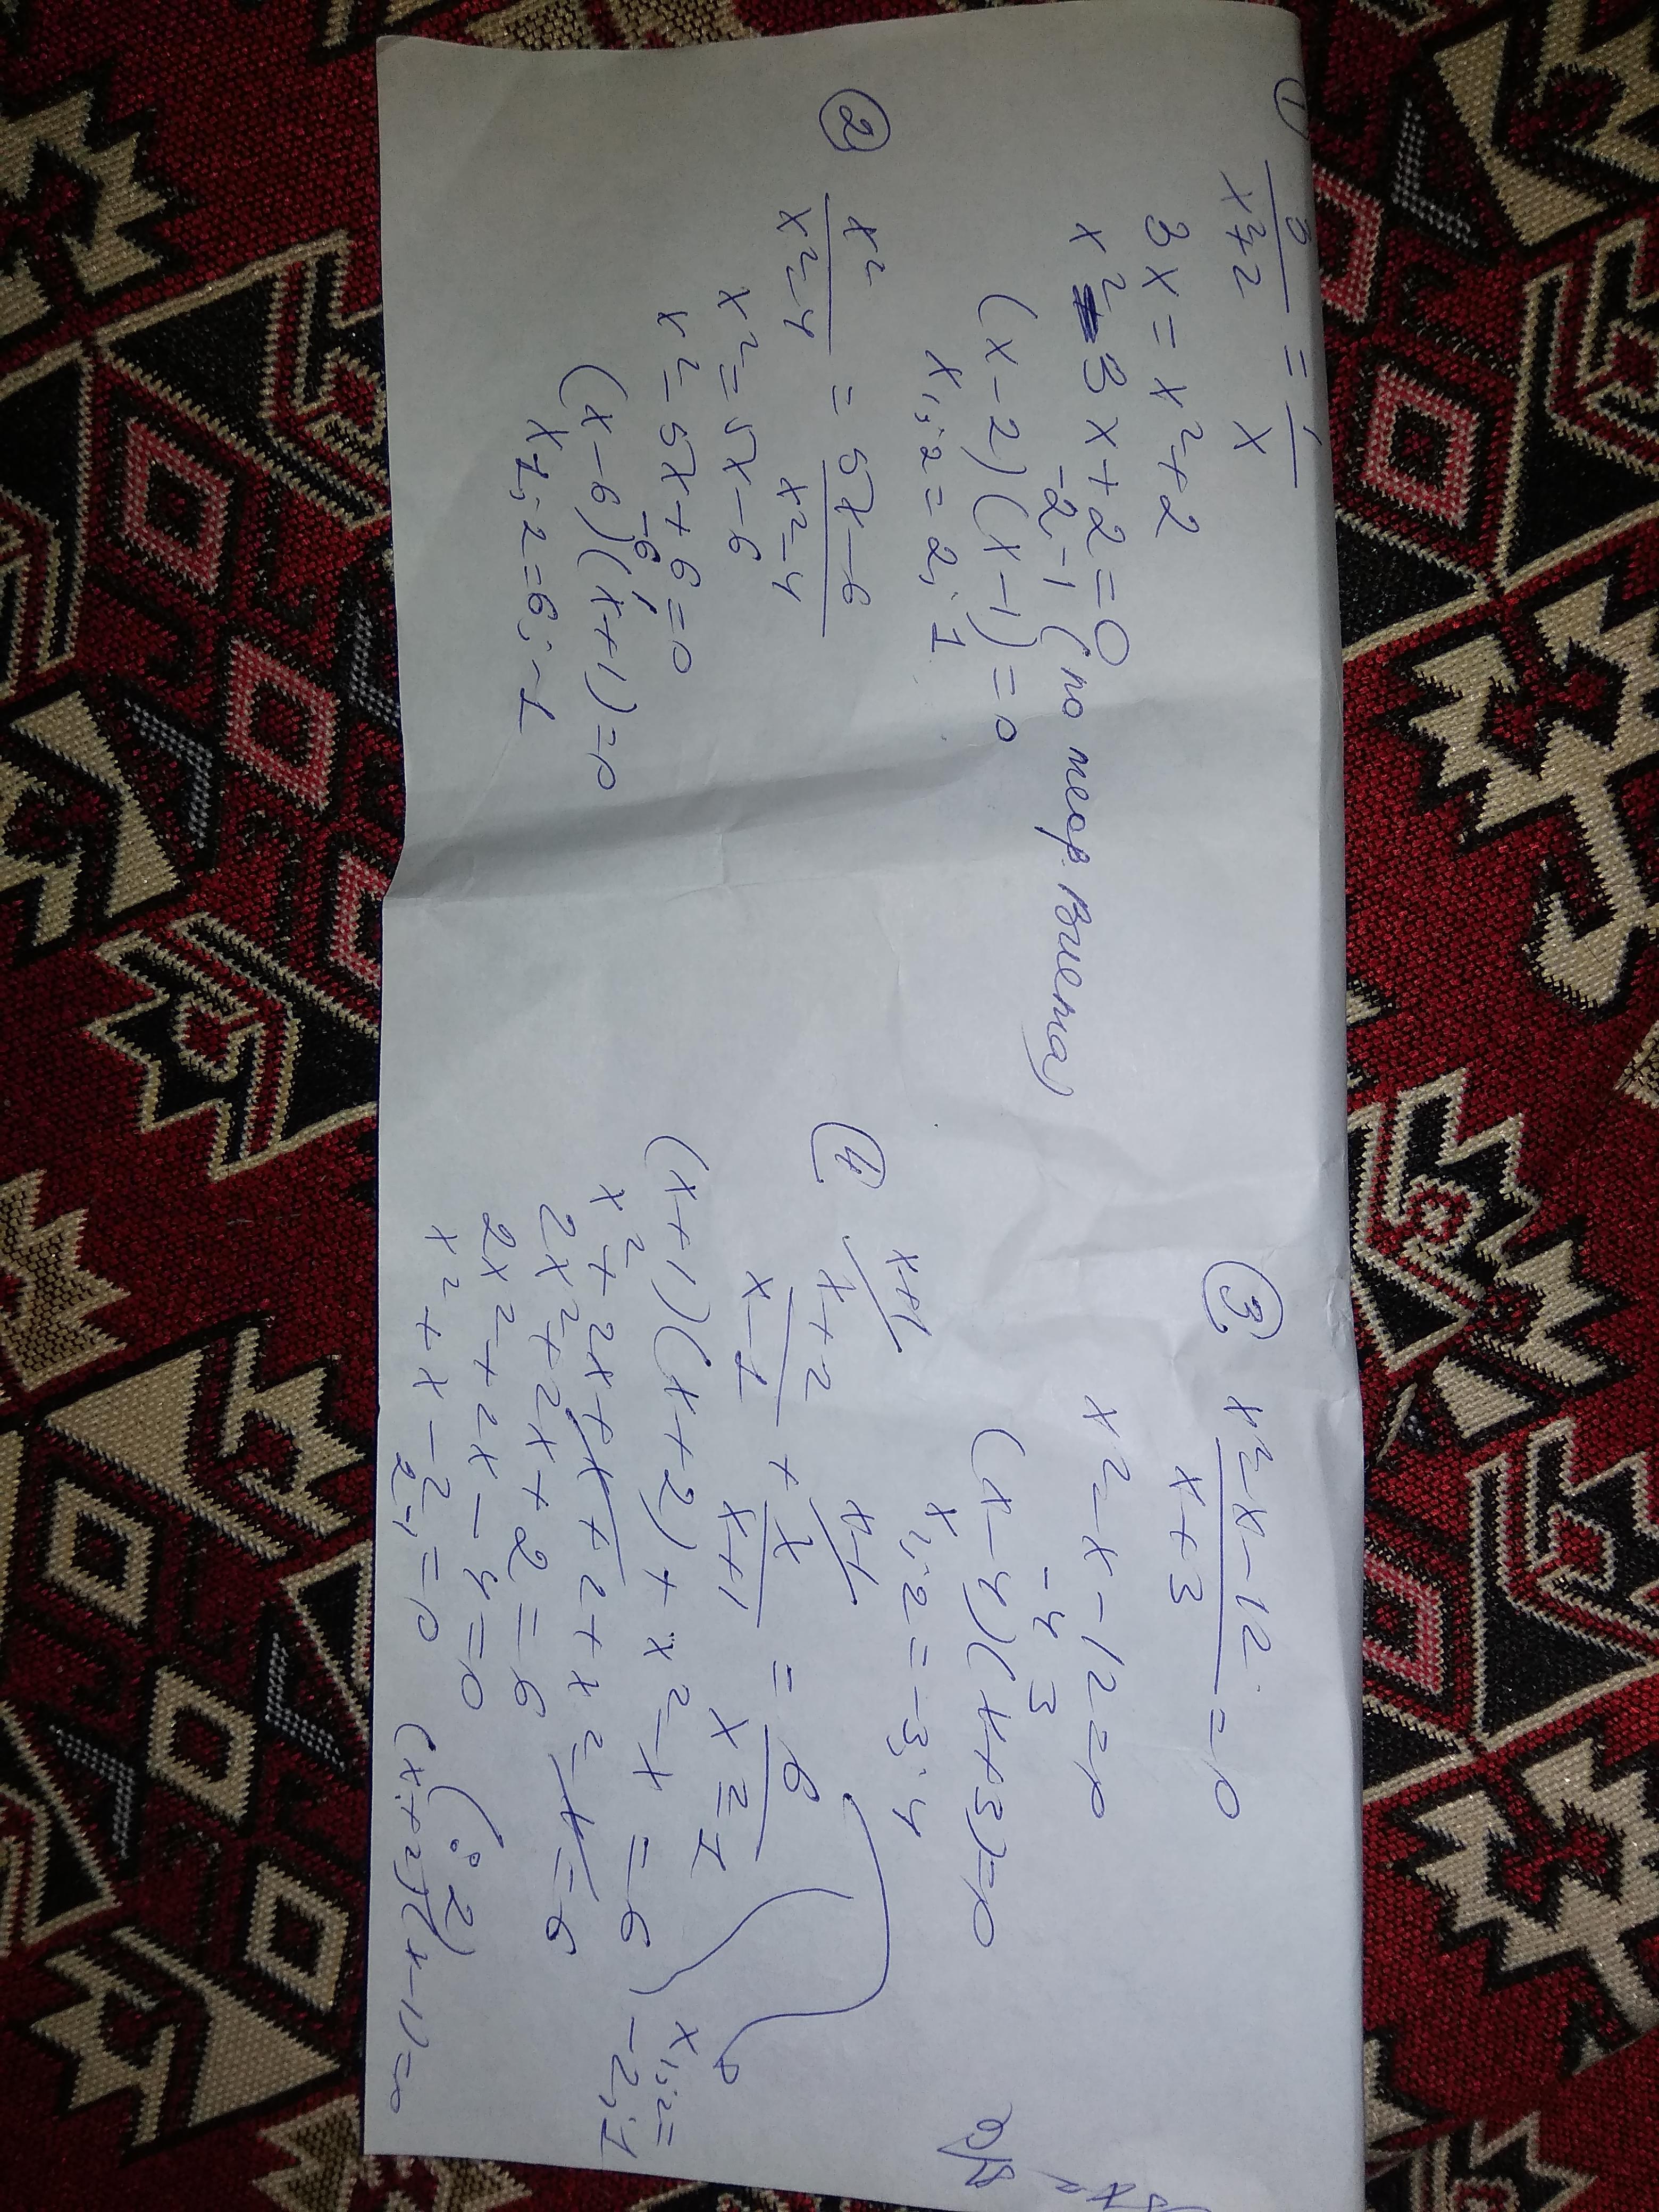 ① 3/(x²+2) = 1/x
3x = x²+2
x²-3x+2=0
-2, -1 (по теор. Виета)
(x-2)(x-1)=0
x₁;₂ = 2; 1
② x²/(x²-4) = (5x-6)/(x²-4)
x² = 5x-6
x²-5x+6=0
-6 1
(x-6)(x+1)=0
x₁;₂=6;-1
③ (x²-x-12)/(x+3) = 0
x²-x-12=0
-4 3
(x-4)(x+3)=0
x₁;₂=-3;4
④ x+1/ (x+2)/(x-1) + x-1/ x/(x+1) = 6/(x²-1)
(x+1)(x+2)+x²-x=6
x²+2x+x+2+x²-x=6
2x²+2x+2=6
2x²+2x-4=0 (:2)
x²+x-2=0
2 -1
(x+2)(x-1)=0
x₁;₂=
-2;1